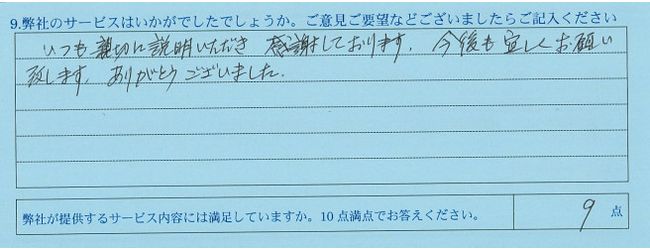 9.弊社のサービスはいかがでしたでしょうか。ご意見ご要望などございましたらご記入ください
いつも親切に説明いただき 感謝しております。今後も宜しくお願い
致します。ありがとうございました。
弊社が提供するサービス内容には満足していますか。10点満点でお答えください。 9 点